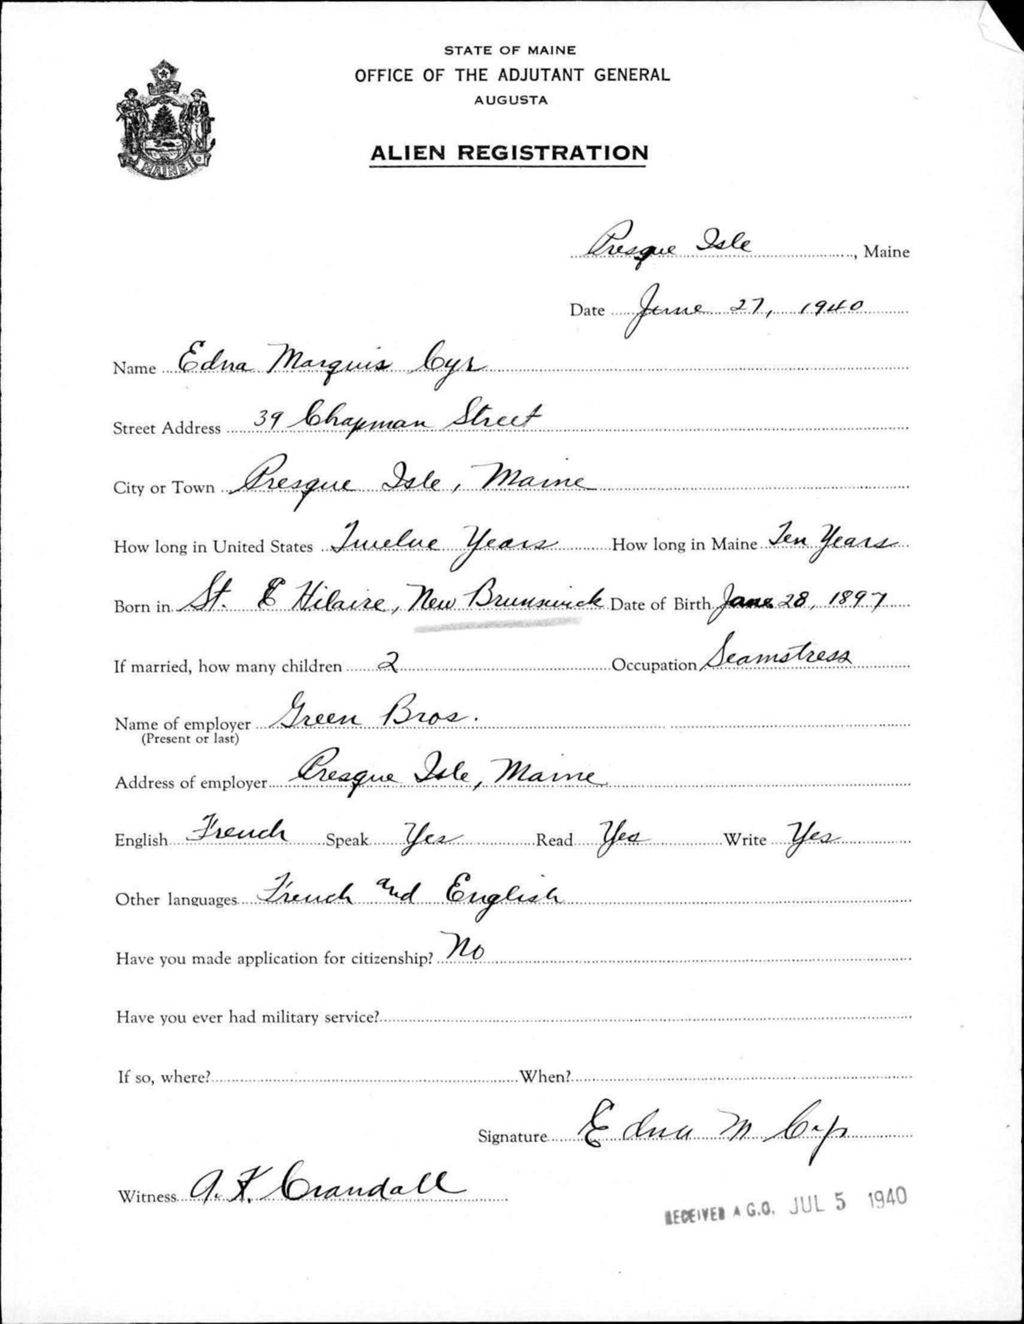 STATE OF MAINE
OFFICE OF THE ADJUTANT GENERAL
AUGUSTA
ALIEN REGISTRATION
MAINE
Presque Isle, Maine
Date June 27, 1940
Name Edna Marquis Cyr
Street Address 39 Chapman Street
City or Town Presque Isle, Maine
How long in United States Twelve Years How long in Maine Ten Years
Born in St. Hilaire, New Brunswick Date of Birth 28, 1897
If married, how many children 2 Occupation Seamstress
Name of employer Green Bros.
(Present or last)
Address of employer Presque Isle, Maine
English French Speak Yes Read Yes Write Yes
Other languages French and English
Have you made application for citizenship? No
Have you ever had military service?
If so, where? When?
Signature Edna M Cyr
Witness A. K. Crandall
RECEIVED A G.O. JUL 5 1940